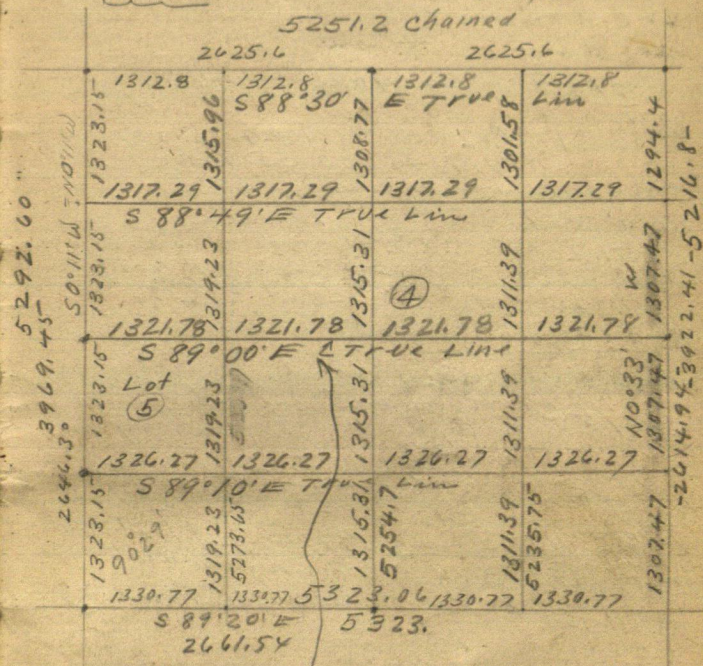 5251.2 Chained
2625.6 2625.6
1312.8 1312.8 1312.8 1312.8
S 88°30' E True Lin
1323.15 1315.96 1308.77 1301.58 1294.4
1317.29 1317.29 1317.29 1317.29
S 88°49' E True Lin
1323.15 1319.23 1315.31 1311.39 1307.47
④
1321.78 1321.78 1321.78 1321.78
S 89°00' E ₵ True Line
Lot
⑤
1323.15 1319.23 1315.31 1311.39 1307.47
N0°33' W
1326.27 1326.27 1326.27 1326.27
S 89°10' E True Lin
1323.15 1319.23 1315.31 1311.39 1307.47
5273.65 5254.7 5235.75
90°29'
1330.77 1330.77 5323.06 1330.77 1330.77
S 89°20' E 5323.
2661.54
5292.60
3969.45
2646.30
S0°11'W
-2614.94-3922.41-5216.8-